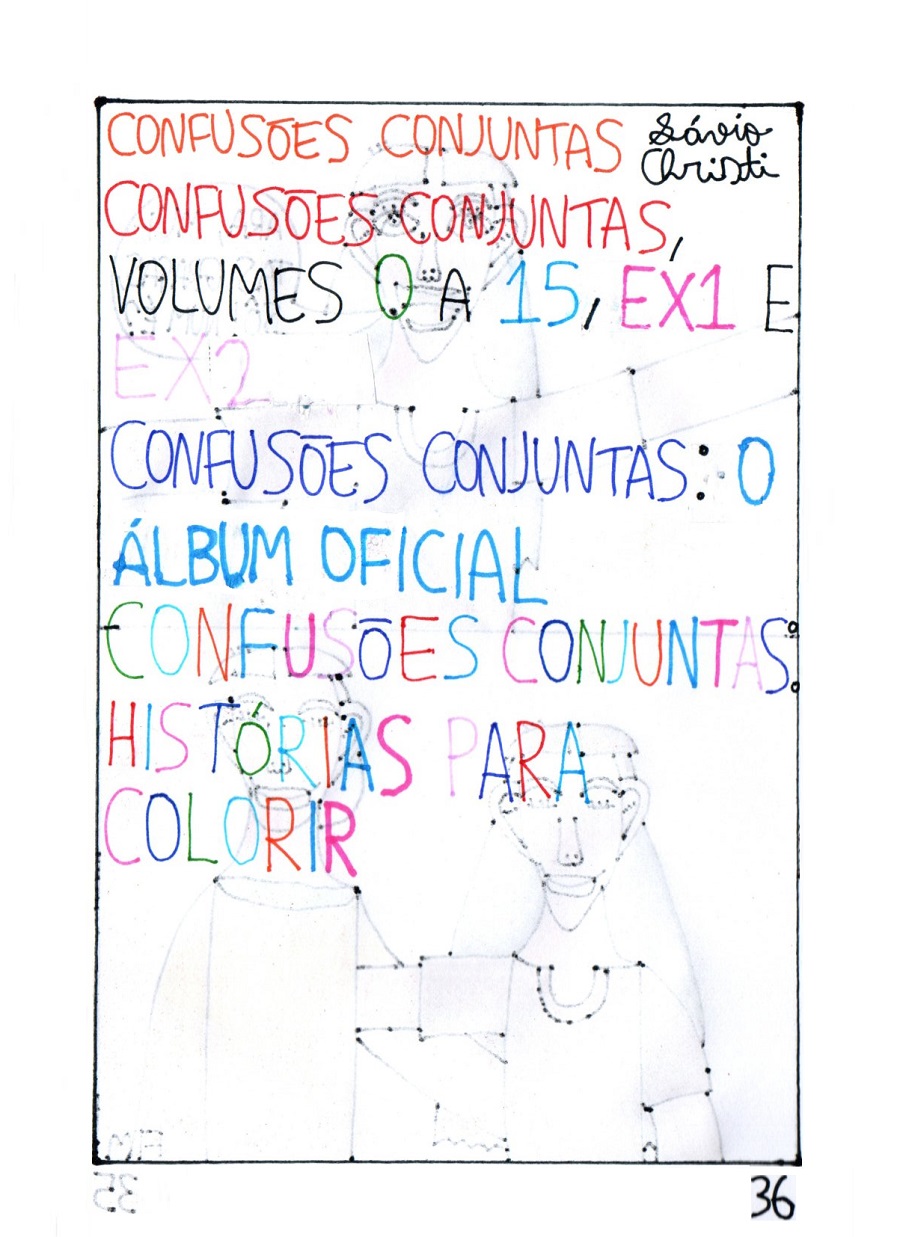 CONFUSÕES CONJUNTAS Sávio
Christi
CONFUSÕES CONJUNTAS,
VOLUMES 0 A 15, EX1 E
EX2
CONFUSÕES CONJUNTAS: O
ÁLBUM OFICIAL
CONFUSÕES CONJUNTAS:
HISTÓRIAS PARA
COLORIR
35
36